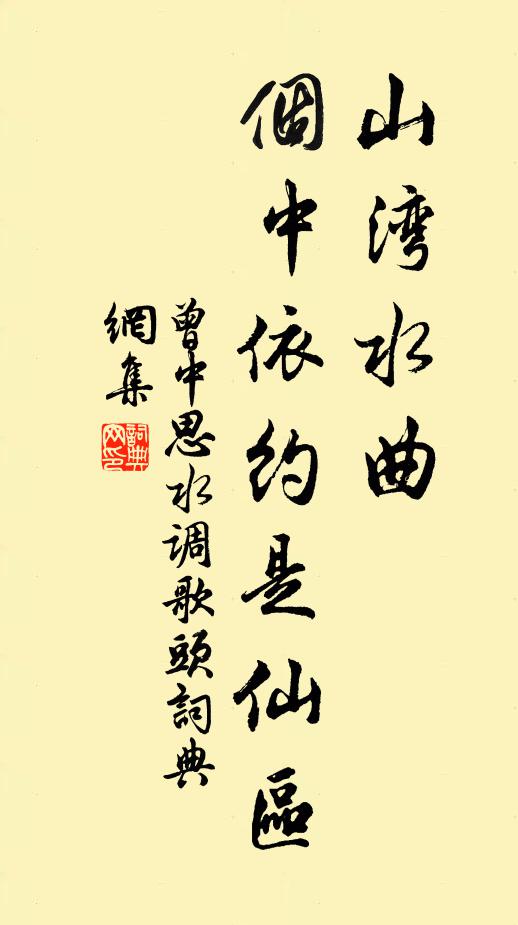 山湾水曲
個中依约是仙區
曾中思水调歌頭詞典
網集
詞典
网印